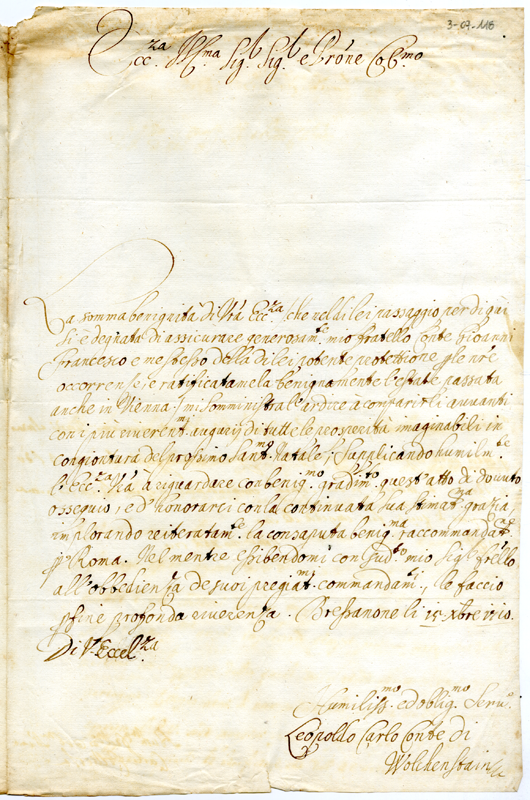 3-07-116
Ecc.za Ill.ma Sig.r Sig.r e Prōne Col.mo
La somma benignità di Vrā Ecc.za che nel di lei passaggio per di quì
si è degnata di assicurare generosam.te mio fratello Conte Gioanni
Francesco e me stesso della di lei potente protettione gle nrē
occorrense, e ratificatamela benignamente l'estate passata
anche in Vienna, mi somministra l'ardire à comparirli avvanti
con i più riverenti augurij di tutte le prosperità imaginabili in
congiontura del prossimo Sant.mo Natale, Supplicando humilm.te
l'Ecc.za Vrā à riguardare con benig.mo gradim.to quest'atto di dovuto
ossequio, ed' honorarci con la continuata sua stimat.ma grazia,
implorando reiteratam.te la consaputa benig.ma raccommandat.ne
p Roma. Nel mentre essibendomi con sud.to mio Sig.r frēllo
all'obbedienza de suoi pregiat.mi commandam.ti, le faccio
p fine profonda riverenza. Bressanone li 15 Xbre 1710.
Di V. Eccel.za
Humiliss.mo ed oblig.mo Serv.
Leopoldo Carlo Conte di
Wolchenstain